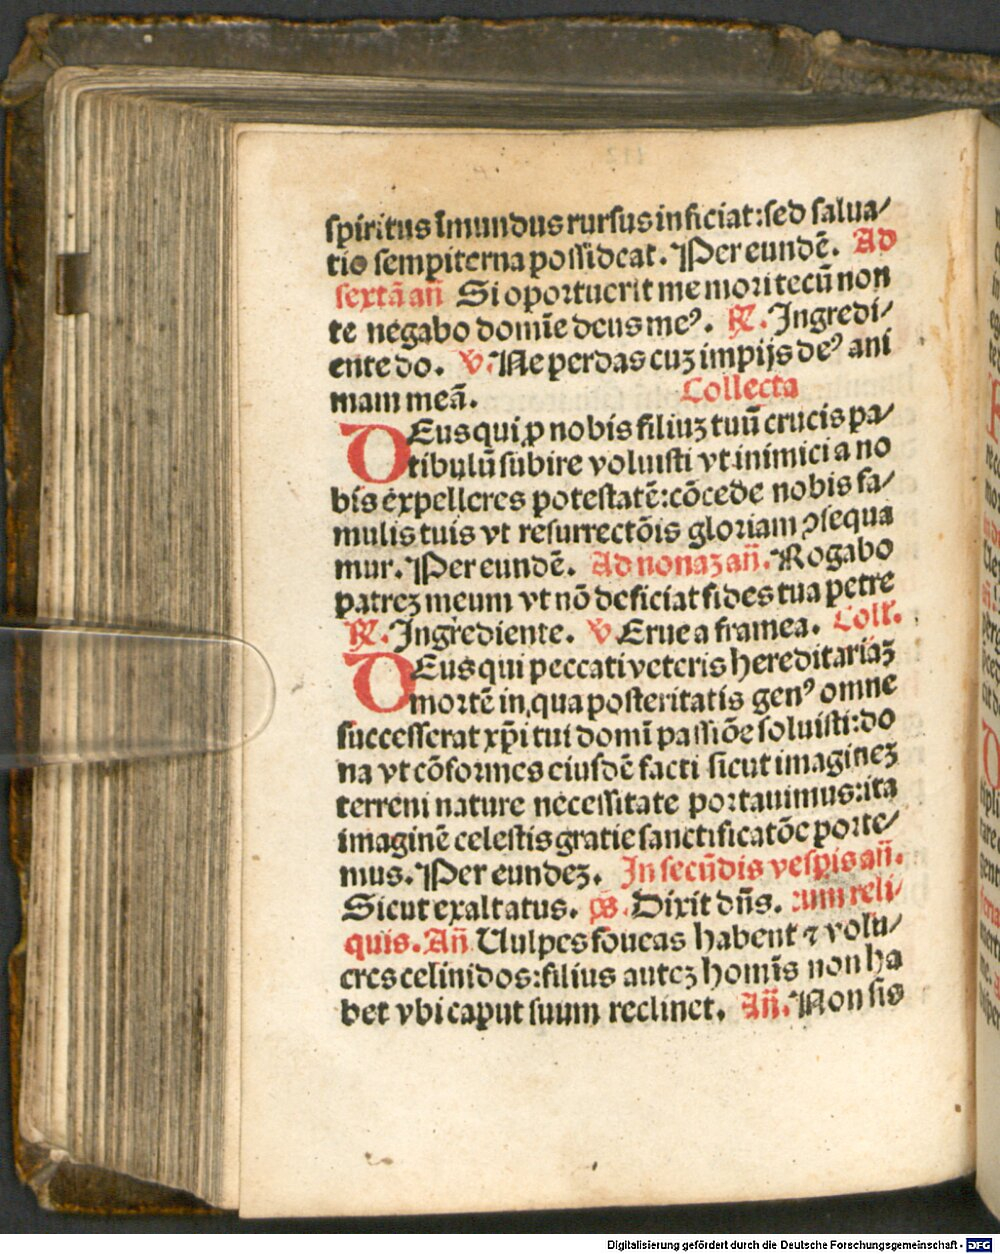 spiritus īmundus rursus inficiat: sed salua/
tio sempiterna possideat. Per eundē. Ad
sextā an̄ Si oportuerit me mori tecū non
te negabo domīe deus meꝰ. ℟. Ingredi/
ente do. ℣. Ne perdas cuʒ impijs deꝰ ani
mam meā. Collecta
DEus qui ꝓ nobis filiuʒ tuū crucis pa/
tibulū subire voluisti vt inimici a no
bis expelleres potestatē: cōcede nobis fa/
mulis tuis vt resurrectōis gloriam ꝯsequa
mur. Per eundē. Ad nonaʒ an̄. Rogabo
patreʒ meum vt nō deficiat fides tua petre
℟. Ingrediente. ℣. Erue a framea. Coll.
DEus qui peccati veteris hereditariaʒ
mortē in qua posteritatis genꝰ omne
successerat xp̄i tui domī passiōe soluisti: do
na vt cōformes eiusdē facti sicut imagineʒ
terreni nature necessitate portauimus: ita
imaginē celestis gratie sanctificatōe porte/
mus. Per eundeʒ. In secūdis vesp̄is an̄.
Sicut exaltatus. ps. Dixit dn̄s. cum reli/
quis. An̄ Uulpes foueas habent ⁊ volu/
cres celi nidos: filius auteʒ homīs non ha
bet vbi caput suum reclinet. An̄. Non sis
Digitalisierung gefördert durch die Deutsche Forschungsgemeinschaft - DFG